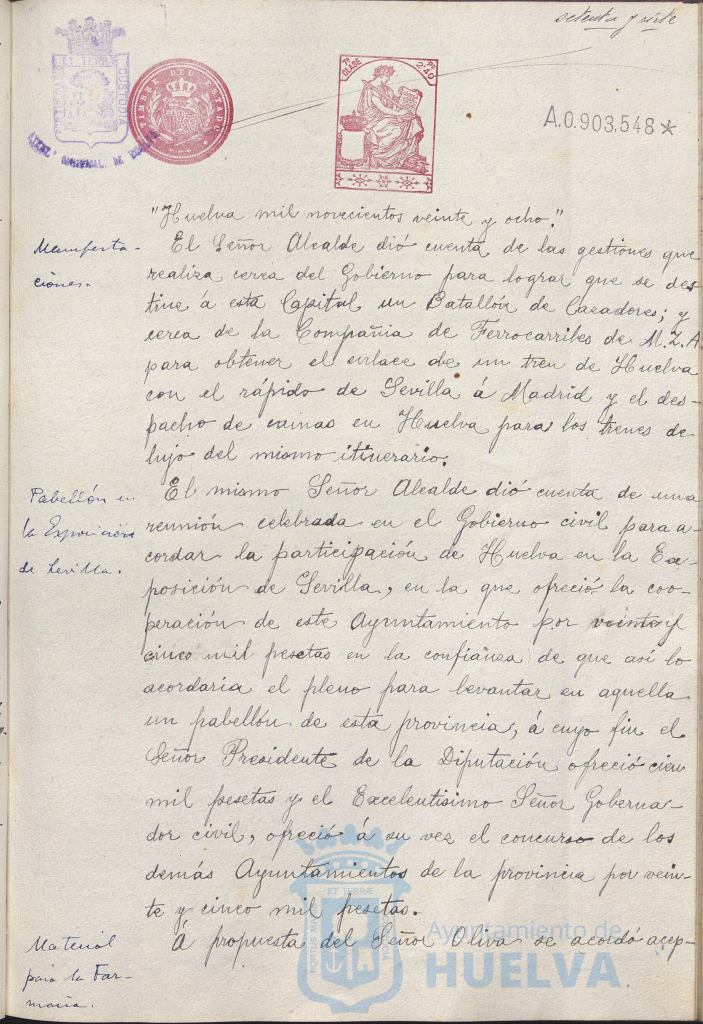 setenta y siete
ET TERRÆ
CUSTODIA
TIMBRE DEL ESTADO
7ª CLASE
2'40
A.0.903,548*
"Huelva mil novecientos veinte y ocho."
Manifesta-
ciones.
El Señor Alcalde dió cuenta de las gestiones que
realiza cerca del Gobierno para lograr que se des-
tine á esta Capital un Batallón de Cazadores; y
cerca de la Compañia de Ferrocarriles de M.Z.A
para obtener el enlace de un tren de Huelva
con el rápido de Sevilla á Madrid y el des-
pacho de camas en Huelva para los trenes de
lujo del mismo itinerario.
Pabellón en
la Exposición
de Sevilla.
El mismo Señor Alcalde dió cuenta de una
reunión celebrada en el Gobierno civil para a-
cordar la participación de Huelva en la Ex-
posición de Sevilla, en la que ofreció la coo-
peración de este Ayuntamiento por veinte y
cinco mil pesetas en la confianza de que así lo
acordaria el pleno para levantar en aquella
un pabellón de esta provincia, á cuyo fin el
Señor Presidente de la Diputación ofreció cien
mil pesetas y el Excelentisimo Señor Goberna-
dor civil, ofreció á su vez el concurso de los
demás Ayuntamientos de la provincia por vein-
te y cinco mil pesetas.
Material
para la Far-
macia.
Á propuesta del Señor Oliva se acordó acep-
ET TERRÆ
PORTUS MARIS
Ayuntamiento de
HUELVA